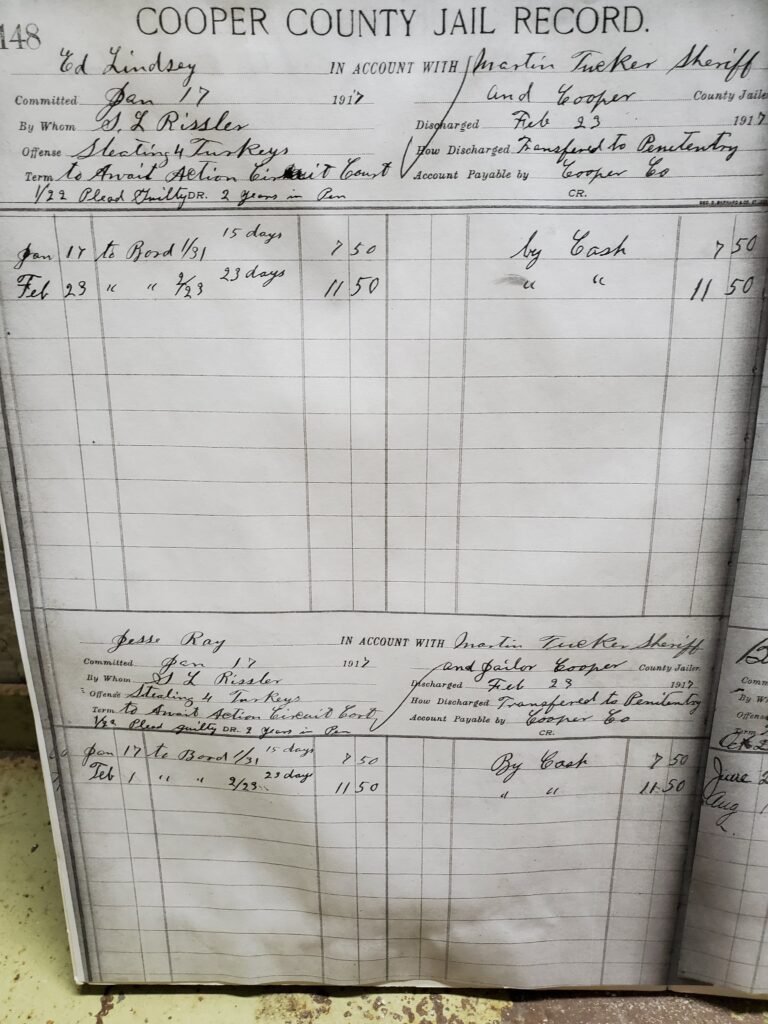 148
COOPER COUNTY JAIL RECORD.
Ed Lindsey IN ACCOUNT WITH Martin Tucker Sheriff
Committed Jan 17 1917 and Cooper County Jailer
By Whom S. L Rissler Discharged Feb 23 1917
Offense Stealing 4 Turkeys How Discharged Transfered to Penetentry
Term to Await Action Circuit Court Account Payable by Cooper Co
1/22 Plead Guilty DR. 2 years in Pen CR.
Jan 17 to Bord 1/31 15 days 7 50 by Cash 7 50
Feb 23 " " 2/23 23 days 11 50 " " 11 50
Jesse Ray IN ACCOUNT WITH Martin Tucker Sheriff
Committed Jan 17 1917 and Jailor Cooper County Jailer.
By Whom S L Rissler Discharged Feb 23 1917
Offense Stealing 4 Turkeys How Discharged Transfered to Penitentry
Term to Await Action Circuit Cort Account Payable by Cooper Co
1/22 Plead guilty DR. 2 years in Pen CR.
Jan 17 to Bord 1/31 15 days 7 50 By Cash 7 50
Feb 1 " " 2/23 23 days 11 50 " " 11 50
June 2
Aug 1